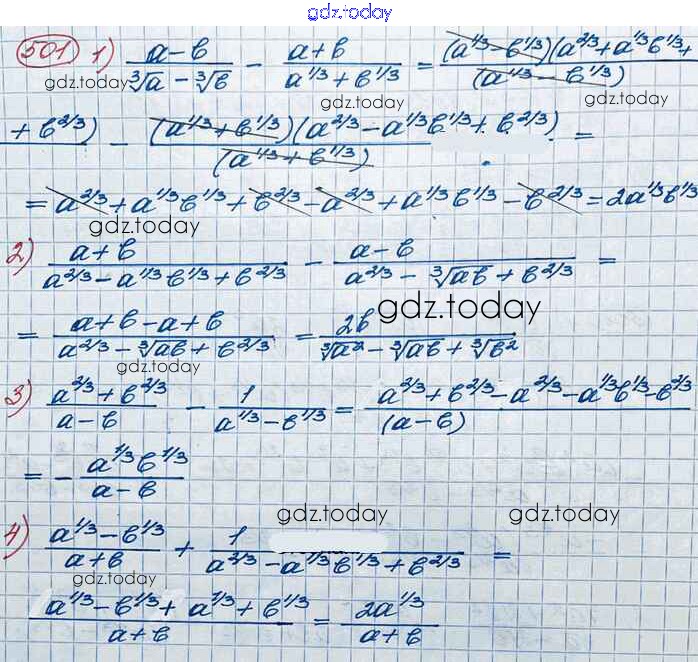 gdz.today
501 1) (a-в)/(∛a - ∛в) - (a+в)/(a^1/3 + в^1/3) = (a^1/3 - в^1/3)(a^2/3 + a^1/3 в^1/3 + / (a^1/3 - в^1/3)
gdz.today gdz.today gdz.today
+ в^2/3) - (a^1/3 + в^1/3)(a^2/3 - a^1/3 в^1/3 + в^2/3) / (a^1/3 + в^1/3) =
= a^2/3 + a^1/3 в^1/3 + в^2/3 - a^2/3 + a^1/3 в^1/3 - в^2/3 = 2a^1/3 в^1/3
gdz.today
2) (a+в)/(a^2/3 - a^1/3 в^1/3 + в^2/3) - (a-в)/(a^2/3 - ∛aв + в^2/3) =
gdz.today
= (a+в-a+в)/(a^2/3 - ∛aв + в^2/3) = 2в/(∛a² - ∛aв + ∛в²)
gdz.today
3) (a^2/3 + в^2/3)/(a-в) - 1/(a^1/3 - в^1/3) = (a^2/3 + в^2/3 - a^2/3 - a^1/3 в^1/3 - в^2/3)/(a-в)
= - (a^1/3 в^1/3)/(a-в)
gdz.today gdz.today
4) (a^1/3 - в^1/3)/(a+в) + 1/(a^2/3 - a^1/3 в^1/3 + в^2/3) =
gdz.today
(a^1/3 - в^1/3 + a^1/3 + в^1/3)/(a+в) = 2a^1/3/(a+в)